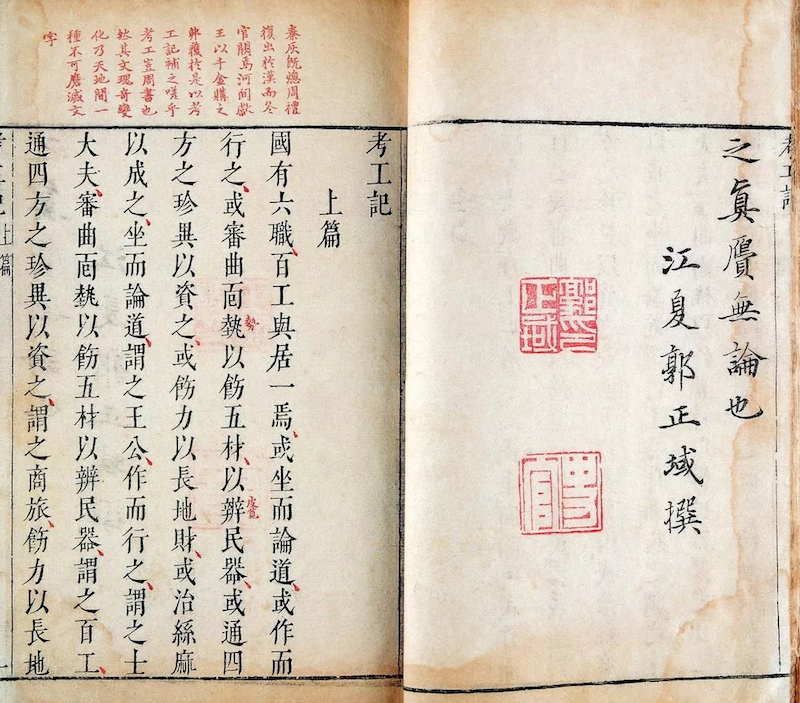 考工記
之眞贋無論也
江夏郭正域撰
秦灰既熄周禮
復出於漢而冬
官闕焉河間獻
王以千金購之
弗獲於是以考
工記補之嗟乎
考工豈周書也
然其文瑰奇變
化乃天地間一
種不可磨滅文
字
考工記
上篇
國有六職、百工與居一焉、或坐而論道、或作而
行之、或審曲面埶以飭五材、以辨民器、或通四
勢
方之珍異以資之、或飭力以長地財、或治絲麻
以成之、坐而論道、謂之王公、作而行之、謂之士
大夫、審曲面埶以飭五材以辨民器、謂之百工、
通四方之珍異以資之、謂之商旅、飭力以長地
考工記上篇